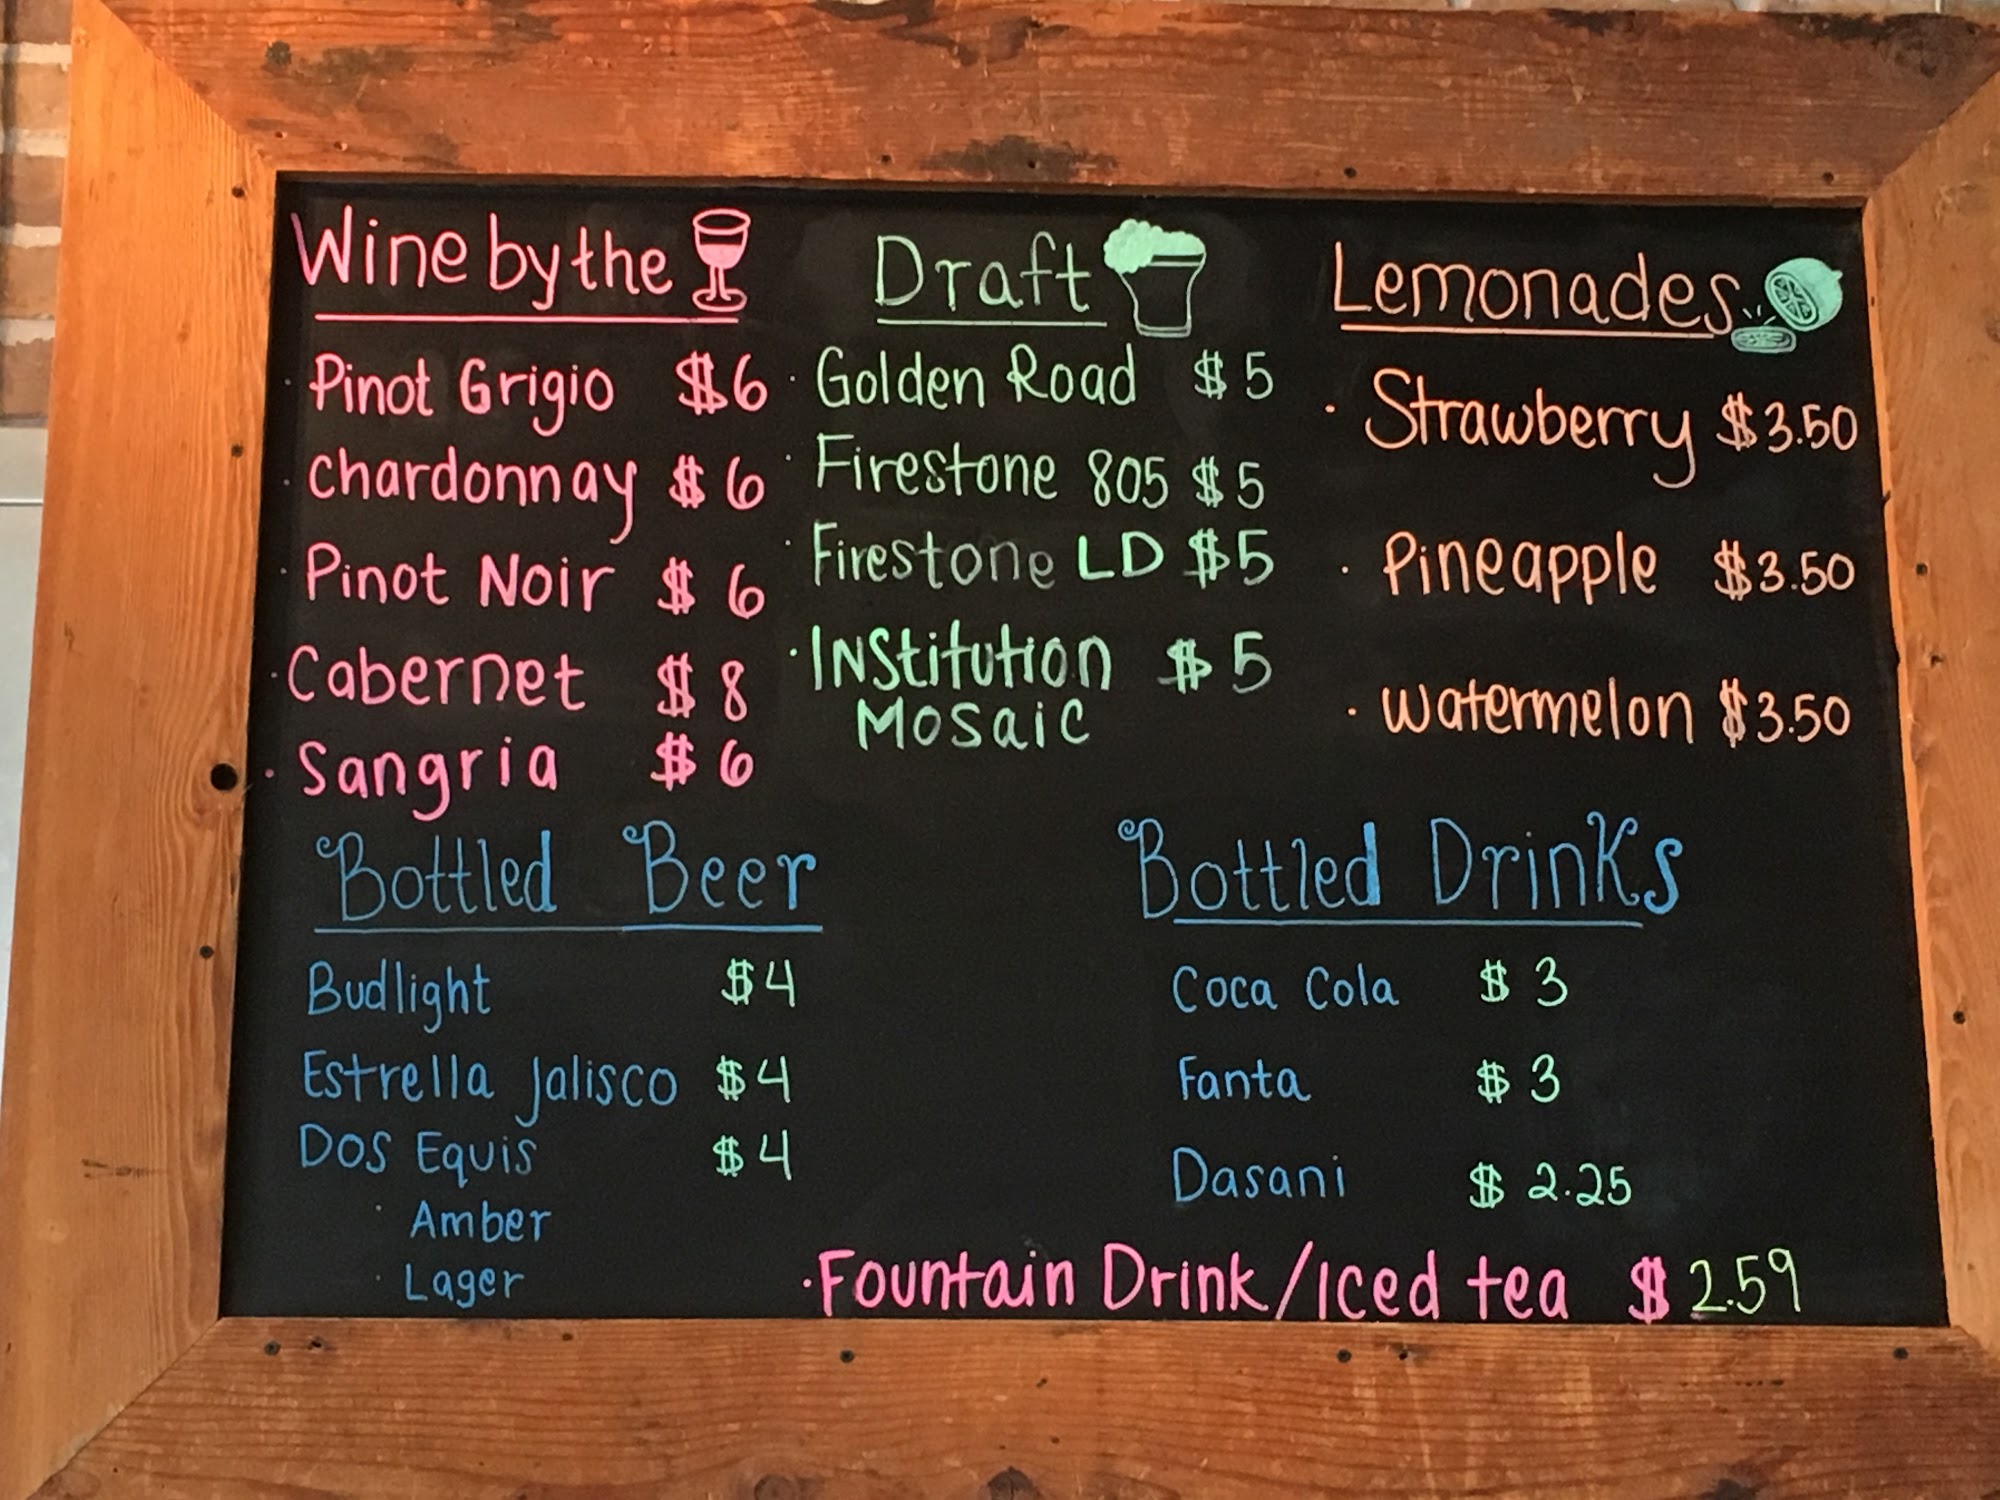 Wine by the
· Pinot Grigio $6
· Chardonnay $6
· Pinot Noir $6
· Cabernet $8
· Sangria $6
Draft
· Golden Road $5
· Firestone 805 $5
· Firestone LD $5
· Institution $5
Mosaic
Lemonades
· Strawberry $3.50
· Pineapple $3.50
· Watermelon $3.50
Bottled Beer
Budlight $4
Estrella Jalisco $4
Dos Equis $4
· Amber
· Lager
Bottled Drinks
Coca Cola $3
Fanta $3
Dasani $2.25
· Fountain Drink/Iced tea $2.59